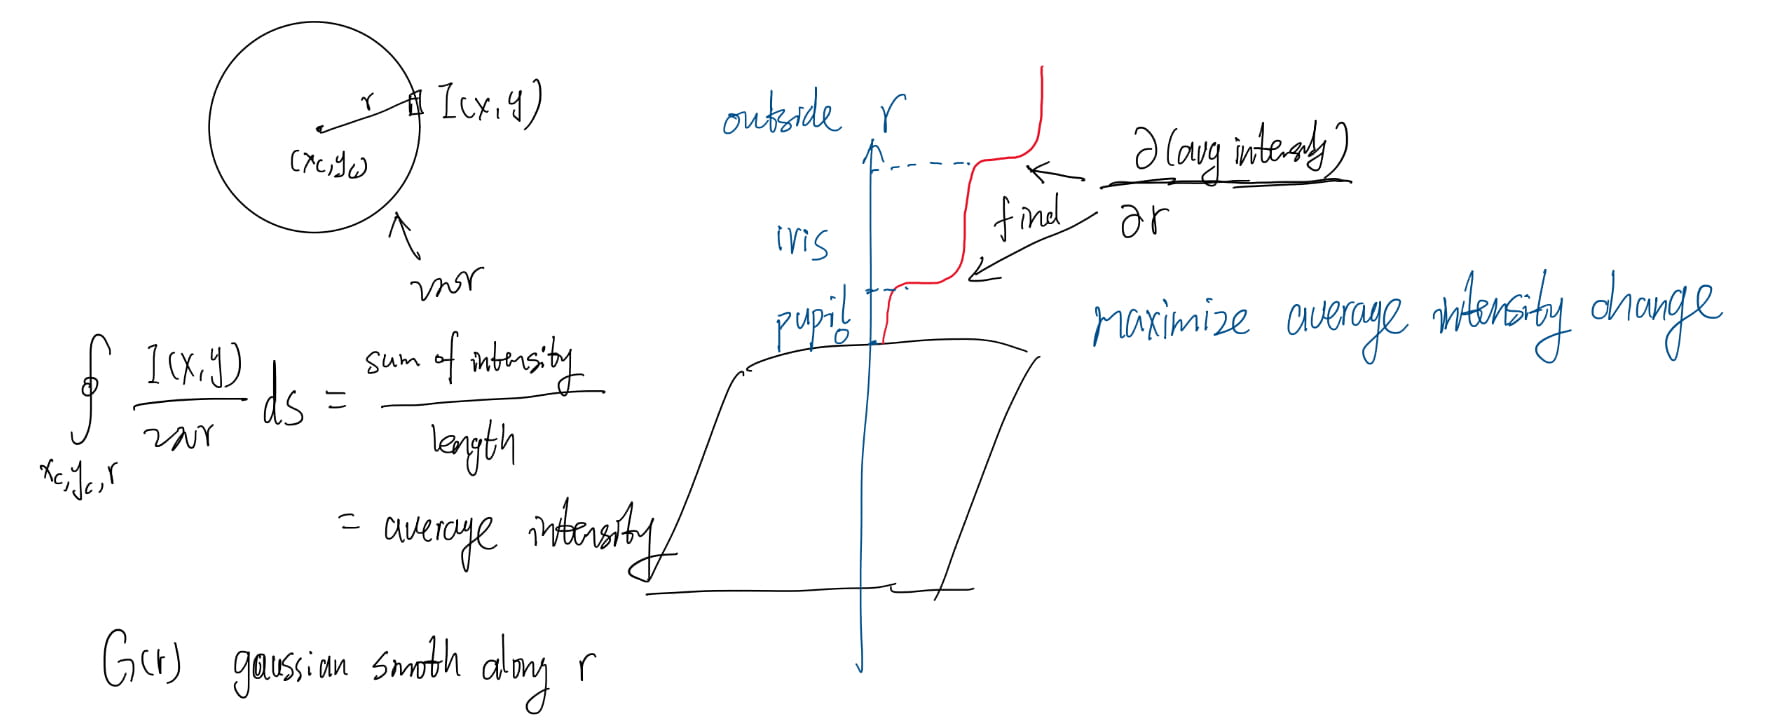 r
I(x,y)
(xc,yc)
2πr
∮ I(x,y) / 2πr ds = sum of intensity / length
xc,yc,r
= average intensity
G(r) gaussian smoth along r
outside r
iris
pupil
0
find
∂(avg intensity) / ∂r
maximize average intensity change